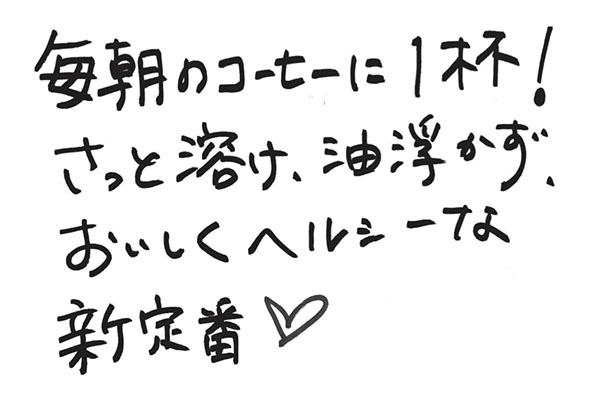 毎朝のコーヒーに1杯!
さっと溶け、油浮かず、
おいしくヘルシーな
新定番♡